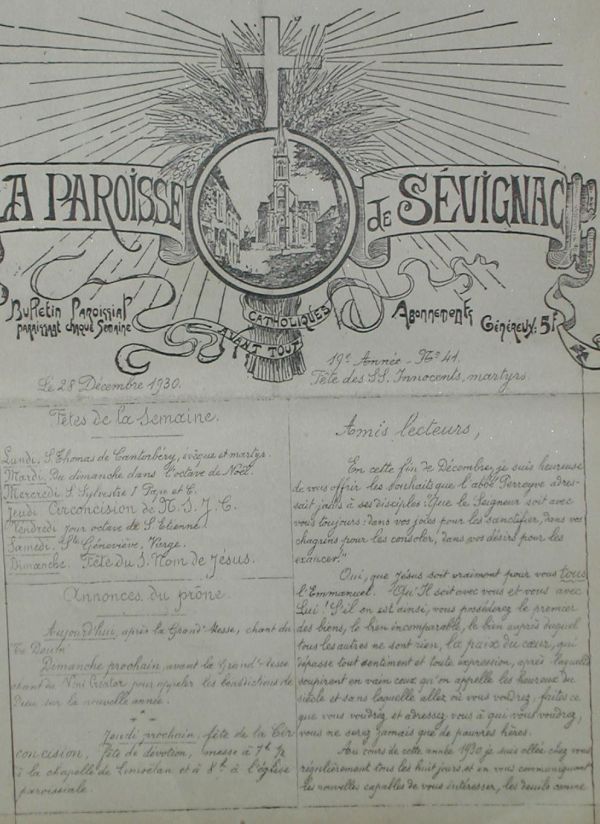 LA PAROISSE de SÉVIGNAC
Bulletin Paroissial
paraissant chaque Semaine
CATHOLIQUES
AVANT TOUT
Abonnements
Généreux: 5F
Le 28 Décembre 1930.
19e Année - No 41.
Fête des SS. Innocents, martyrs.
Fêtes de la Semaine.
Lundi. S. Thomas de Cantorbéry, évêque et martyr.
Mardi. Du dimanche dans l'octave de Noël.
Mercredi. S. Sylvestre I Pape et C.
Jeudi Circoncision de N. S. J. C.
Vendredi Jour octave de St Etienne.
Samedi. Ste Géneviève, Vierge.
Dimanche. Fête du S. Nom de Jésus.
Annonces du prône.
Aujourd'hui, après la Grand'Messe, chant du
Te Deum
Demanche prochain, avant la Grand'Messe
chant du Veni Creator pour appeler les bénédictions de
Dieu sur la nouvelle année.
Jeudi prochain, fête de la Cir
concision, fête de dévotion, messe à 7h
à la chapelle de Limoëlan et à 8h à l'église
paroissiale.
Amis lecteurs,
En cette fin de Décembre, je suis heureuse
de vous offrir les souhaits que l'abbé Perreyve adres-
sait jadis à ses disciples: "Que le Seigneur soit avec
vous toujours: dans vos joies pour les sanctifier, dans vos
chagrins pour les consoler, dans vos désirs pour les
exaucer."
Oui, que Jésus soit vraiment pour vous tous
l'Emmanuel. Qu'Il soit avec vous et vous avec
Lui! S'il en est ainsi, vous posséderez le premier
des biens, le bien incomparable, le bien auprès duquel
tous les autres ne sont rien, la paix du cœur, qui
dépasse tout sentiment et toute expression, après laquelle
soupirent en vain ceux qu'on appelle les heureux du
siècle et sans laquelle allez où vous voudrez, faites ce
que vous voudrez et adressez vous à qui vous voudrez,
vous ne serez jamais que de pauvres hères.
Au cours de cette année 1930 je suis allée chez vous
régulièrement tous les huit jours et en vous communiquant
les nouvelles capables de vous intéresser, les deuils comme